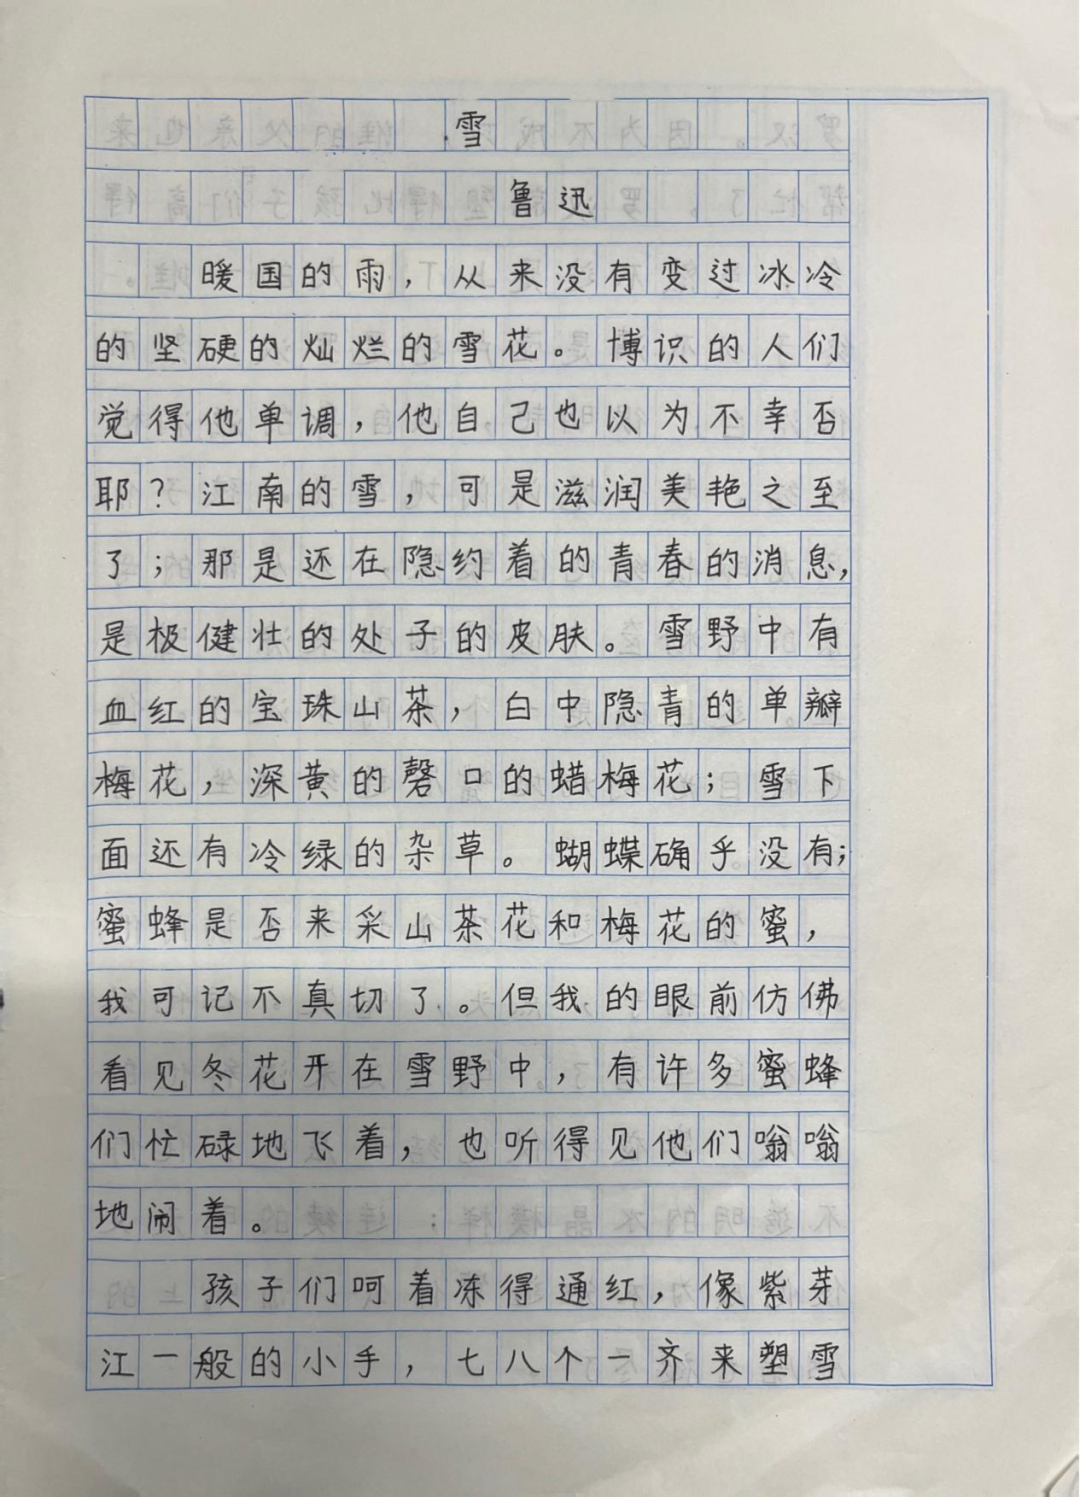 雪
鲁迅
暖国的雨，从来没有变过冰冷
的坚硬的灿烂的雪花。博识的人们
觉得他单调，他自己也以为不幸否
耶？江南的雪，可是滋润美艳之至
了；那是还在隐约着的青春的消息，
是极健壮的处子的皮肤。雪野中有
血红的宝珠山茶，白中隐青的单瓣
梅花，深黄的磬口的蜡梅花；雪下
面还有冷绿的杂草。蝴蝶确乎没有；
蜜蜂是否来采山茶花和梅花的蜜，
我可记不真切了。但我的眼前仿佛
看见冬花开在雪野中，有许多蜜蜂
们忙碌地飞着，也听得见他们嗡嗡
地闹着。
孩子们呵着冻得通红，像紫芽
江一般的小手，七八个一齐来塑雪